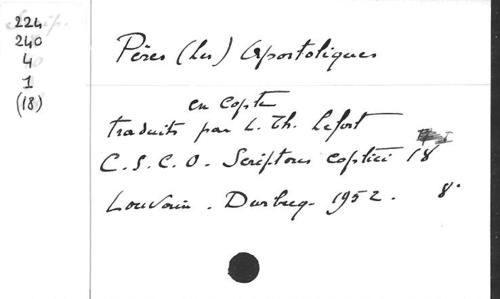 224
240
4
1
(18)
Pères (Les) Apostoliques
en copte
traduits par L. Th. Lefort
C.S.C.O. Scriptores coptici 18
Louvain. Durbecq. 1952. 8°